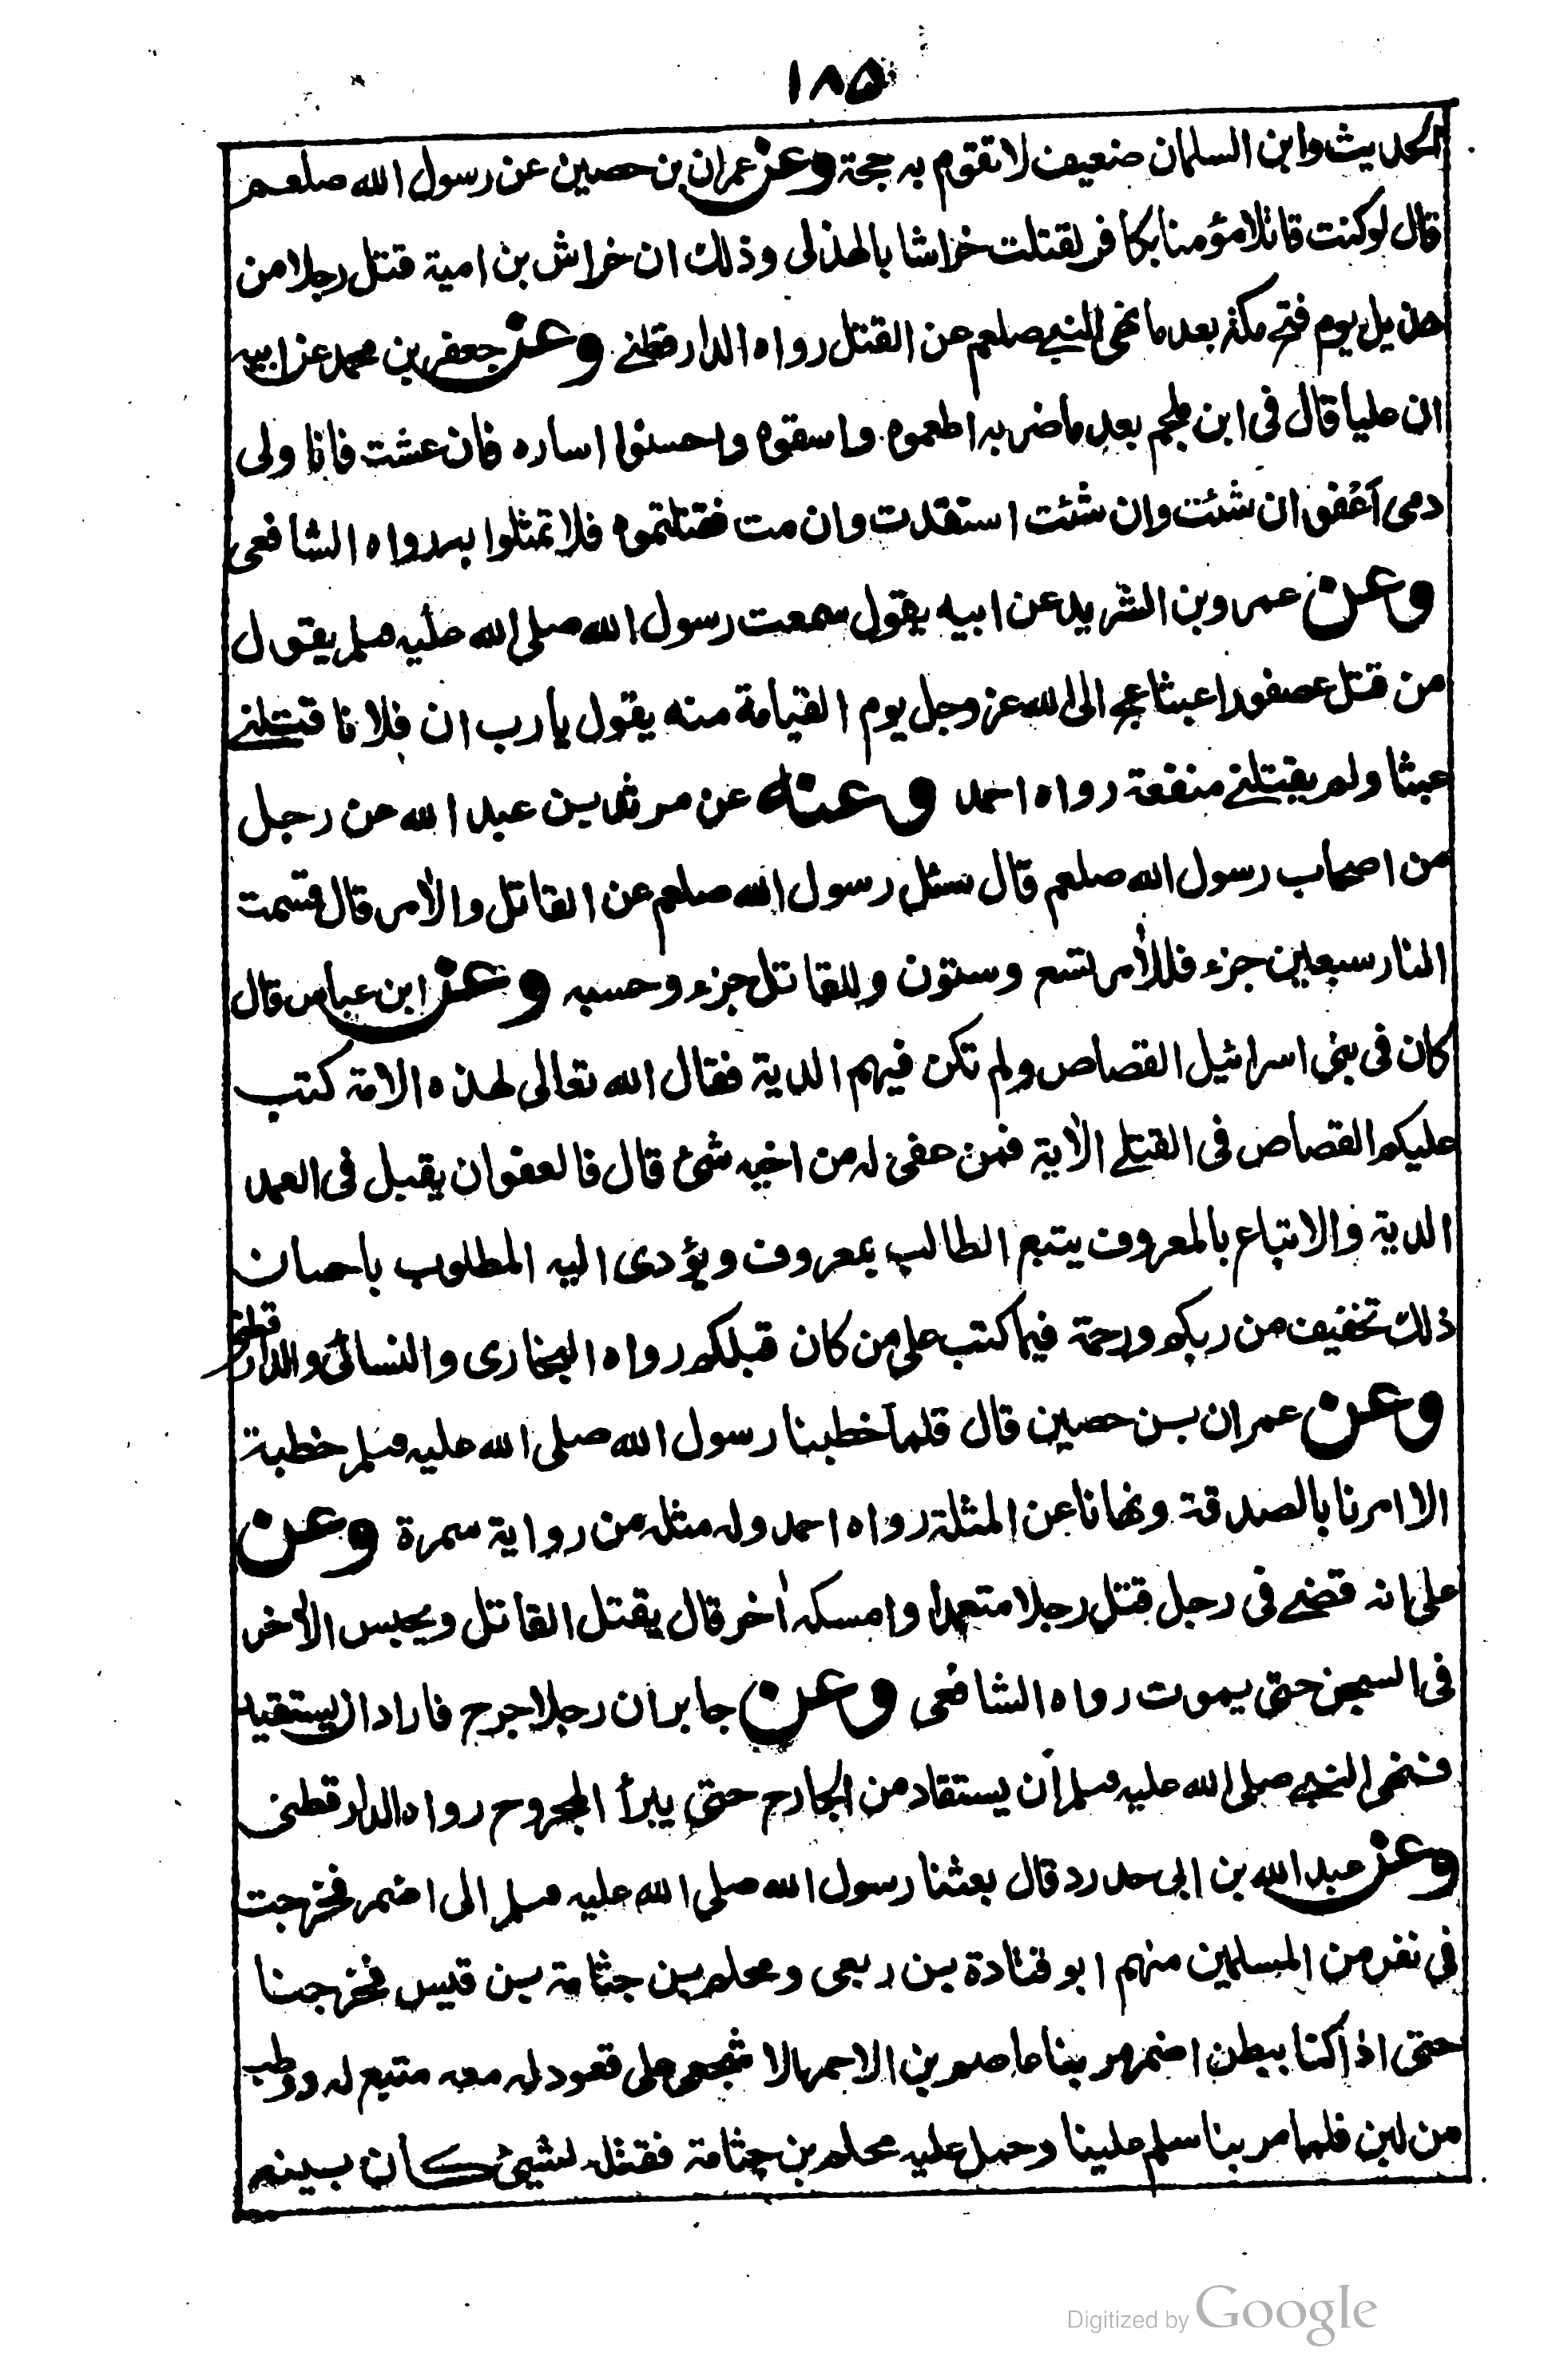 ١٨٥
الحديث وابن السلمان ضعيف لا تقوم به حجة وعن عمران بن حصين عن رسول الله صلعم
قال لو كنت قاتلا مؤمنا بكافر لقتلت خراشا بالهذلى وذلك ان خراش بن امية قتل رجلا من
هذيل يوم فتح مكة بعد ما نهى النبي صلعم عن القتل رواه الدارقطنے وعن جعفر بن محمد عن ابيه
ان عليا قال فى ابن ملجم بعد ما ضربه اطعموه واسقوه واحسنوا اساره فان عشت فانا ولى
دمى أعْفو ان شئت وان شئت استقدت وان مت فقتلتموه فلا تمثلوا به رواه الشافعى
وعن عمرو بن الشريد عن ابيه يقول سمعت رسول الله صلى الله عليه وسلم يقول
من قتل عصفورا عبثا عج الى الله عز وجل يوم القيامة منه يقول يارب ان فلانا قتلنے
عبثا ولم يقتلنے منفعة رواه احمد وعنه عن مرثد بن عبد الله عن رجل
من اصحاب رسول الله صلعم قال سئل رسول الله صلعم عن القاتل والأمر قال قسمت
النار سبعين جزء فللأمر تسع وستون وللقاتل جزء وحسبه وعن ابن عباس قال
كان فى بنى اسرائيل القصاص ولم تكن فيهم الدية فقال الله تعالى لهذه الامة كتب
عليكم القصاص فى القتلے الآية فمن عفى له من اخيه شئ قال فالعفو ان يقبل فى العمد
الدية والاتباع بالمعروف يتبع الطالب بمعروف ويؤدى اليه المطلوب باحسان
ذلك تخفيف من ربكم ورحمة فيما كتب على من كان قبلكم رواه البخارى والنسائى والدارقطنى
وعن عمران بن حصين قال قلما خطبنا رسول الله صلى الله عليه وسلم خطبة
الا امرنا بالصدقة ونهانا عن المثلة رواه احمد وله مثله من رواية سمرة وعن
على انه قضے فى رجل قتل رجلا متعمدا وامسكه آخر قال يقتل القاتل ويحبس الآخر
فى السجن حتى يموت رواه الشافعى وعن جابر ان رجلا جرح فاراد ان يستقيد
فنهى النبي صلى الله عليه وسلم ان يستقاد من الجارح حتى يبرأ المجروح رواه الدارقطنى
وعن عبد الله بن ابى حدرد قال بعثنا رسول الله صلى الله عليه وسلم الى اضمر فخرجت
فى نفر من المسلمين منهم ابو قتادة بن ربعى ومحلم بن جثامة بن قيس فخرجنا
حتى اذا كنا ببطن اضمر مر بنا عاصم بن الاحمر الاشجعى على قعود له معه متيع له ووطب
من لبن فلما مر بنا سلم علينا وحمل عليه محلم بن جثامة فقتله لشيئ كان بينه
Digitized by Google